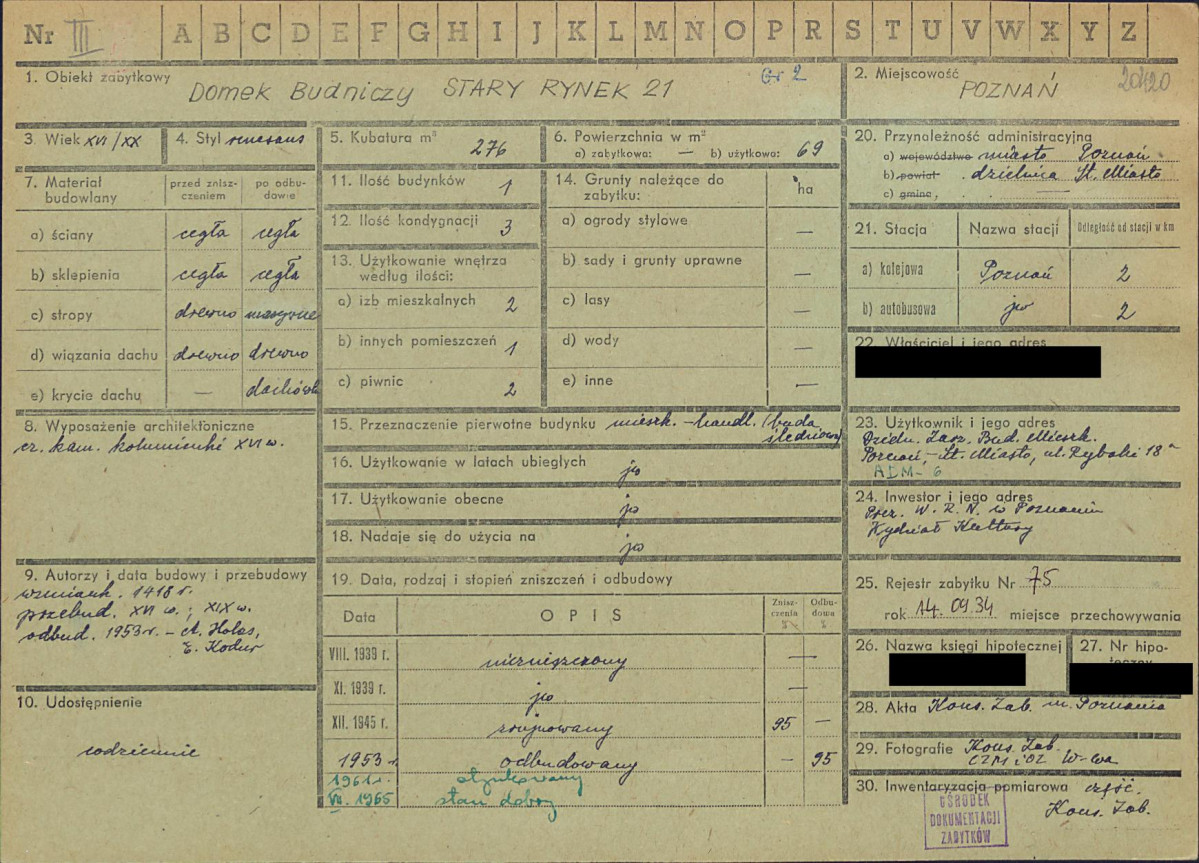 Nr III A B C D E F G H I J K L M N O P R S T U V W X Y Z
1. Obiekt zabytkowy
Domek Budniczy STARY RYNEK 21
Gr 2
2. Miejscowość
POZNAŃ
20420
3. Wiek XVI/XX
4. Styl renesans
5. Kubatura m³ 276
6. Powierzchnia w m²
a) zabytkowa: — b) użytkowa: 69
7. Materiał budowlany
przed zniszczeniem
po odbudowie
a) ściany cegła cegła
b) sklepienia cegła cegła
c) stropy drewno masywne
d) wiązania dachu drewno drewno
e) krycie dachu — dachówk
8. Wyposażenie architektoniczne
cz. kam. kolumienki XVI w.
9. Autorzy i data budowy i przebudowy
wzmiank. 1418 r.
przebud. XVI w.; XIX w.
odbud. 1953 r. —
10. Udostępnienie
codziennie
11. Ilość budynków 1
12. Ilość kondygnacji 3
13. Użytkowanie wnętrza
według ilości:
a) izb mieszkalnych 2
b) innych pomieszczeń 1
c) piwnic 2
14. Grunty należące do
zabytku:
ha
a) ogrody stylowe —
b) sady i grunty uprawne —
c) lasy —
d) wody —
e) inne —
15. Przeznaczenie pierwotne budynku mieszk. - handl. (buda
śledziowa)
16. Użytkowanie w latach ubiegłych jw
17. Użytkowanie obecne jw
18. Nadaje się do użycia na jw
19. Data, rodzaj i stopień zniszczeń i odbudowy
Data
O P I S
Zniszczenia %
Odbudowa %
VIII. 1939 r. niezniszczony —
XI. 1939 r. jw —
XII. 1945 r. zrujnowany 95 —
1953 r. odbudowany — 95
1961 r. otynkowany
VII. 1965 stan dobry
20. Przynależność administracyjna
a) województwo miasto Poznań
b) powiat dzielnica St. Miasto
c) gmina
21. Stacja
Nazwa stacji
Odległość od stacji w km
a) kolejowa Poznań 2
b) autobusowa jw 2
22. Właściciel i jego adres
23. Użytkownik i jego adres
Dzieln. Zarz. Bud. Mieszk.
Poznań - St. Miasto, ul. Rybaki 18a
ADM-6
24. Inwestor i jego adres
Prez. W. R. N. w Poznaniu
Wydział Kultury
25. Rejestr zabytku Nr 75
rok 14.09.34 miejsce przechowywania
26. Nazwa księgi hipotecznej
27. Nr hipoteczny
28. Akta Kons. Zab. m. Poznania
29. Fotografie Kons. Zab.
W-wa
30. Inwentaryzacja pomiarowa część.
Kons. Zab.
OŚRODEK
DOKUMENTACJI
ZABYTKÓW